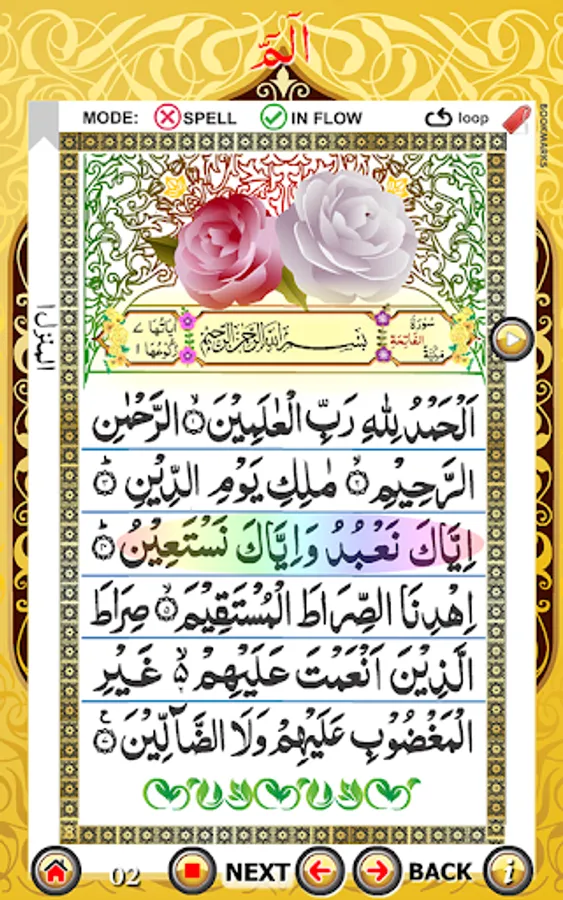 الٓمّٓ
MODE: SPELL IN FLOW loop
BOOKMARKS
سُوْرَةُ الْفَاتِحَةِ مَكِّيَّةٌ
بِسْمِ اللهِ الرَّحْمٰنِ الرَّحِيْمِ
اٰيَاتُهَا ٧ رُكُوْعُهَا ١
اَلْحَمْدُ لِلّٰهِ رَبِّ الْعٰلَمِيْنَ ۙ‏﴿۱﴾ الرَّحْمٰنِ
الرَّحِيْمِ ۙ‏﴿۲﴾ مٰلِكِ يَوْمِ الدِّيْنِ ؕ‏﴿۳﴾
اِيَّاكَ نَعْبُدُ وَاِيَّاكَ نَسْتَعِيْنُ ؕ‏﴿۴﴾
اِهْدِنَا الصِّرَاطَ الْمُسْتَقِيْمَ ۙ‏﴿۵﴾ صِرَاطَ
الَّذِيْنَ اَنْعَمْتَ عَلَيْهِمْ ۙ۬ۙ غَيْرِ
الْمَغْضُوْبِ عَلَيْهِمْ وَلَا الضَّآلِّيْنَ ‏﴿۷﴾
02 NEXT BACK i